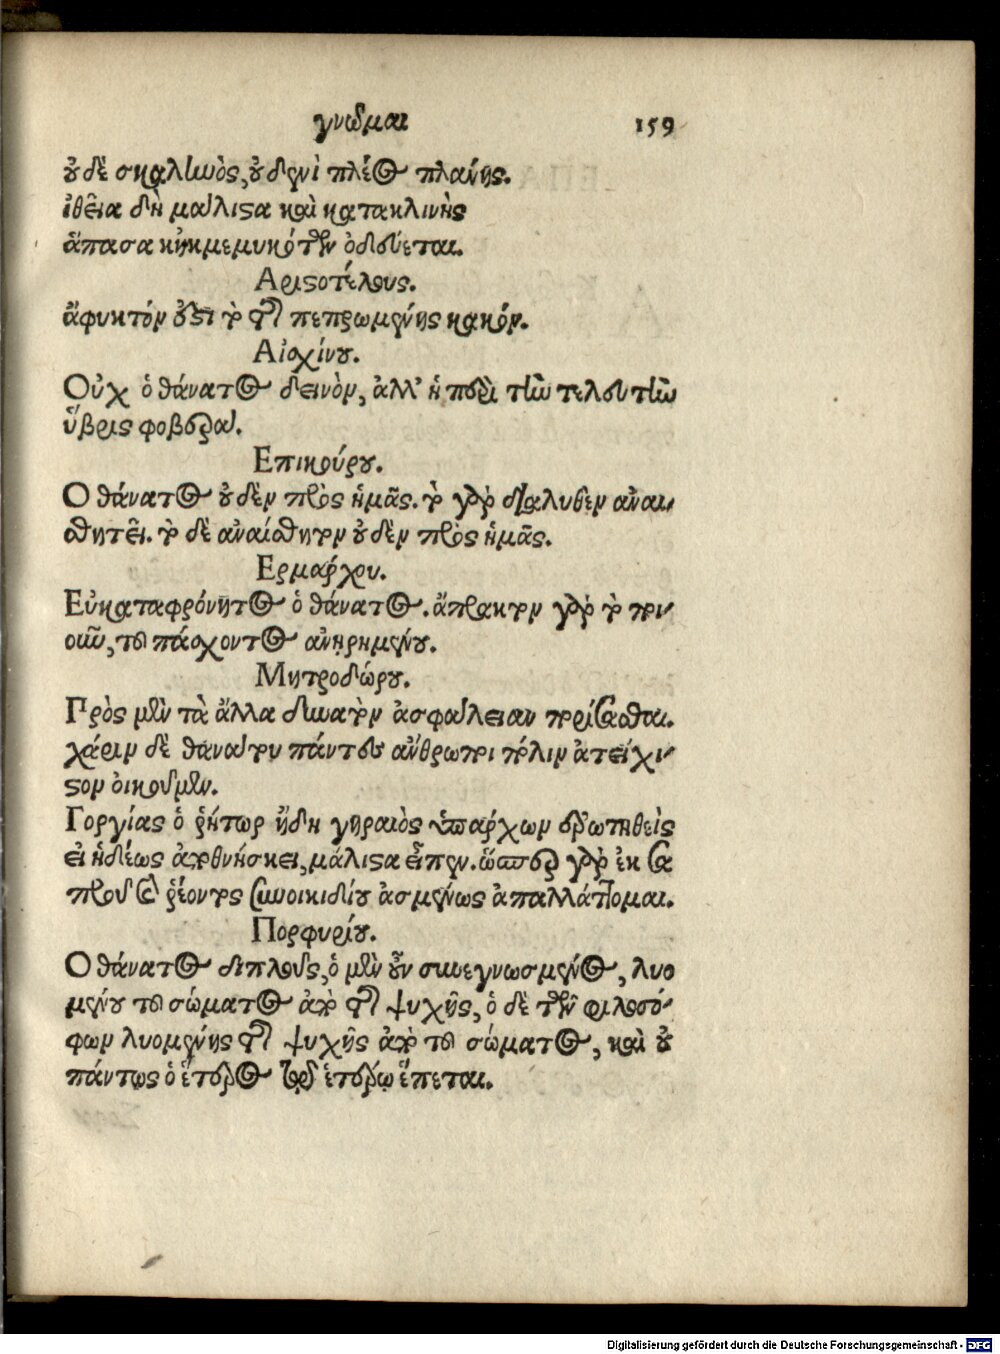 γνῶμαι 159
οὐδὲ σκαληνὸς, οὐδ' ἐνὶ πλέος πλάνης.
ἰθεῖα δὴ μάλιστα καὶ κατακλινὴς
ἅπασα κἠκ μεμυκότων ὁδεύεται.
Αριστοτέλους.
ἄφυκτόν ὅτι τὸ τῆς πεπρωμένης κακόν.
Αἰσχίνου.
Οὐχ ὁ θάνατος δεινὸν, ἀλλ' ἡ περὶ τὴν τελευτὴν
ὕβρις φοβερά.
Επικούρου.
Ο θάνατος οὐδὲν πρὸς ἡμᾶς. τὸ γὰρ διαλυθὲν ἀναι-
σθητεῖ. τὸ δὲ ἀναίσθητον οὐδὲν πρὸς ἡμᾶς.
Ερμάρχου.
Εὐκαταφρόνητος ὁ θάνατος. ἄπρακτον γὰρ τὸ ποι-
οῦν, τοῦ πάσχοντος ἀνῃρημένου.
Μητροδώρου.
Πρὸς μὲν τὰ ἄλλα δυνατὸν ἀσφάλειαν πορίσασθαι.
χάριν δὲ θανάτου πάντες ἄνθρωποι πόλιν ἀτείχι-
στον οἰκοῦμεν.
Γοργίας ὁ ῥήτωρ ἤδη γηραιὸς ὑπάρχων ἐρωτηθεὶς
εἰ ἡδέως ἀποθνήσκει, μάλιστα εἶπεν. ὥσπερ γὰρ ἐκ σα
προῦ καὶ ῥέοντος συνοικιδίου ἀσμένως ἀπαλλάττομαι.
Πορφυρίου.
Ο θάνατος διπλοῦς, ὁ μὲν οὖν συνεγνωσμένος, λυο
μένου τοῦ σώματος ἀπὸ τῆς ψυχῆς, ὁ δὲ τῶν φιλοσό-
φων λυομένης τῆς ψυχῆς ἀπὸ τοῦ σώματος, καὶ οὐ
πάντως ὁ ἕτερος τῷ ἑτέρῳ ἕπεται.
Digitalisierung gefördert durch die Deutsche Forschungsgemeinschaft - DFG